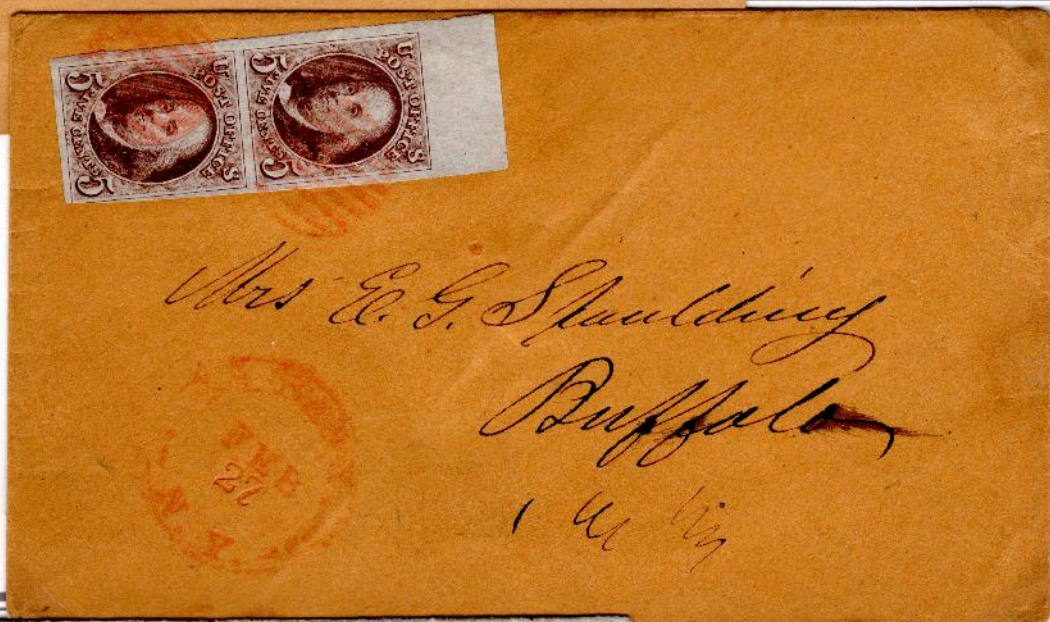 POST OFFICE
U S
FIVE CENTS
5 5
POST OFFICE
U S
FIVE CENTS
5 5
Mrs E. G. Spaulding
Buffalo
ALBANY
FEB
27
N.Y.